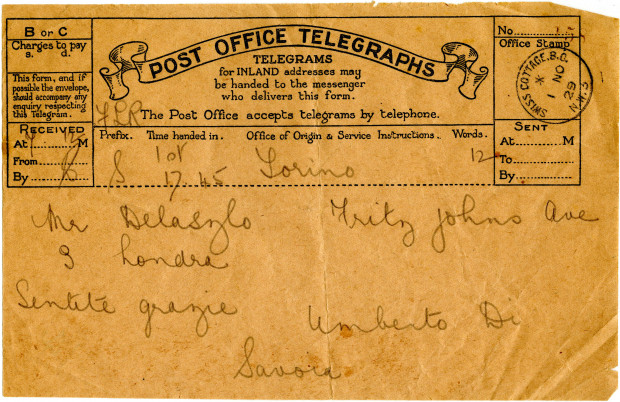 B or C
Charges to pay
s. d.
This form, and if
possible the envelope,
should accompany any
enquiry respecting
this Telegram.
RECEIVED
At M
From
By
POST OFFICE TELEGRAPHS
TELEGRAMS
for INLAND addresses may
be handed to the messenger
who delivers this form.
The Post Office accepts telegrams by telephone.
Prefix. Time handed in. Office of Origin & Service Instructions. Words.
S 1st Torino 12
17.45
No.
Office Stamp
SWISS COTTAGE. B.O.
1 NO
29
N.W.3
SENT
At M
To
By
Mr Delaszlo Fritzjohns Ave
3 Londra
Sentite grazie Umberto Di
Savoia